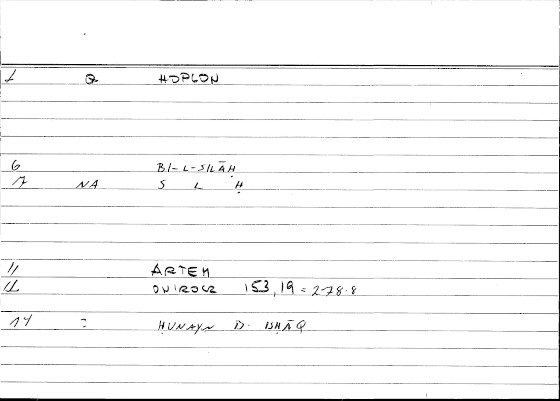 1 Q HOPLON
6 BI-L-SILĀḤ
7 NA S L Ḥ
11 ARTEM
12 ONIROCR 153,19 = 278.8
14 = ḤUNAYN B. ISḤĀQ